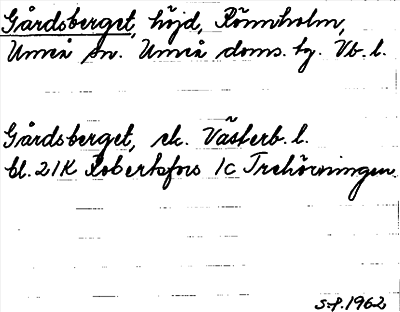 Gårdsberget, höjd, Rönnholm,
Umeå sn. Umeå doms. tg. Vb. l.
Gårdsberget, ek. Västerb. l.
bl. 21K Robertsfors 1c Trehörningen
S-f. 1962